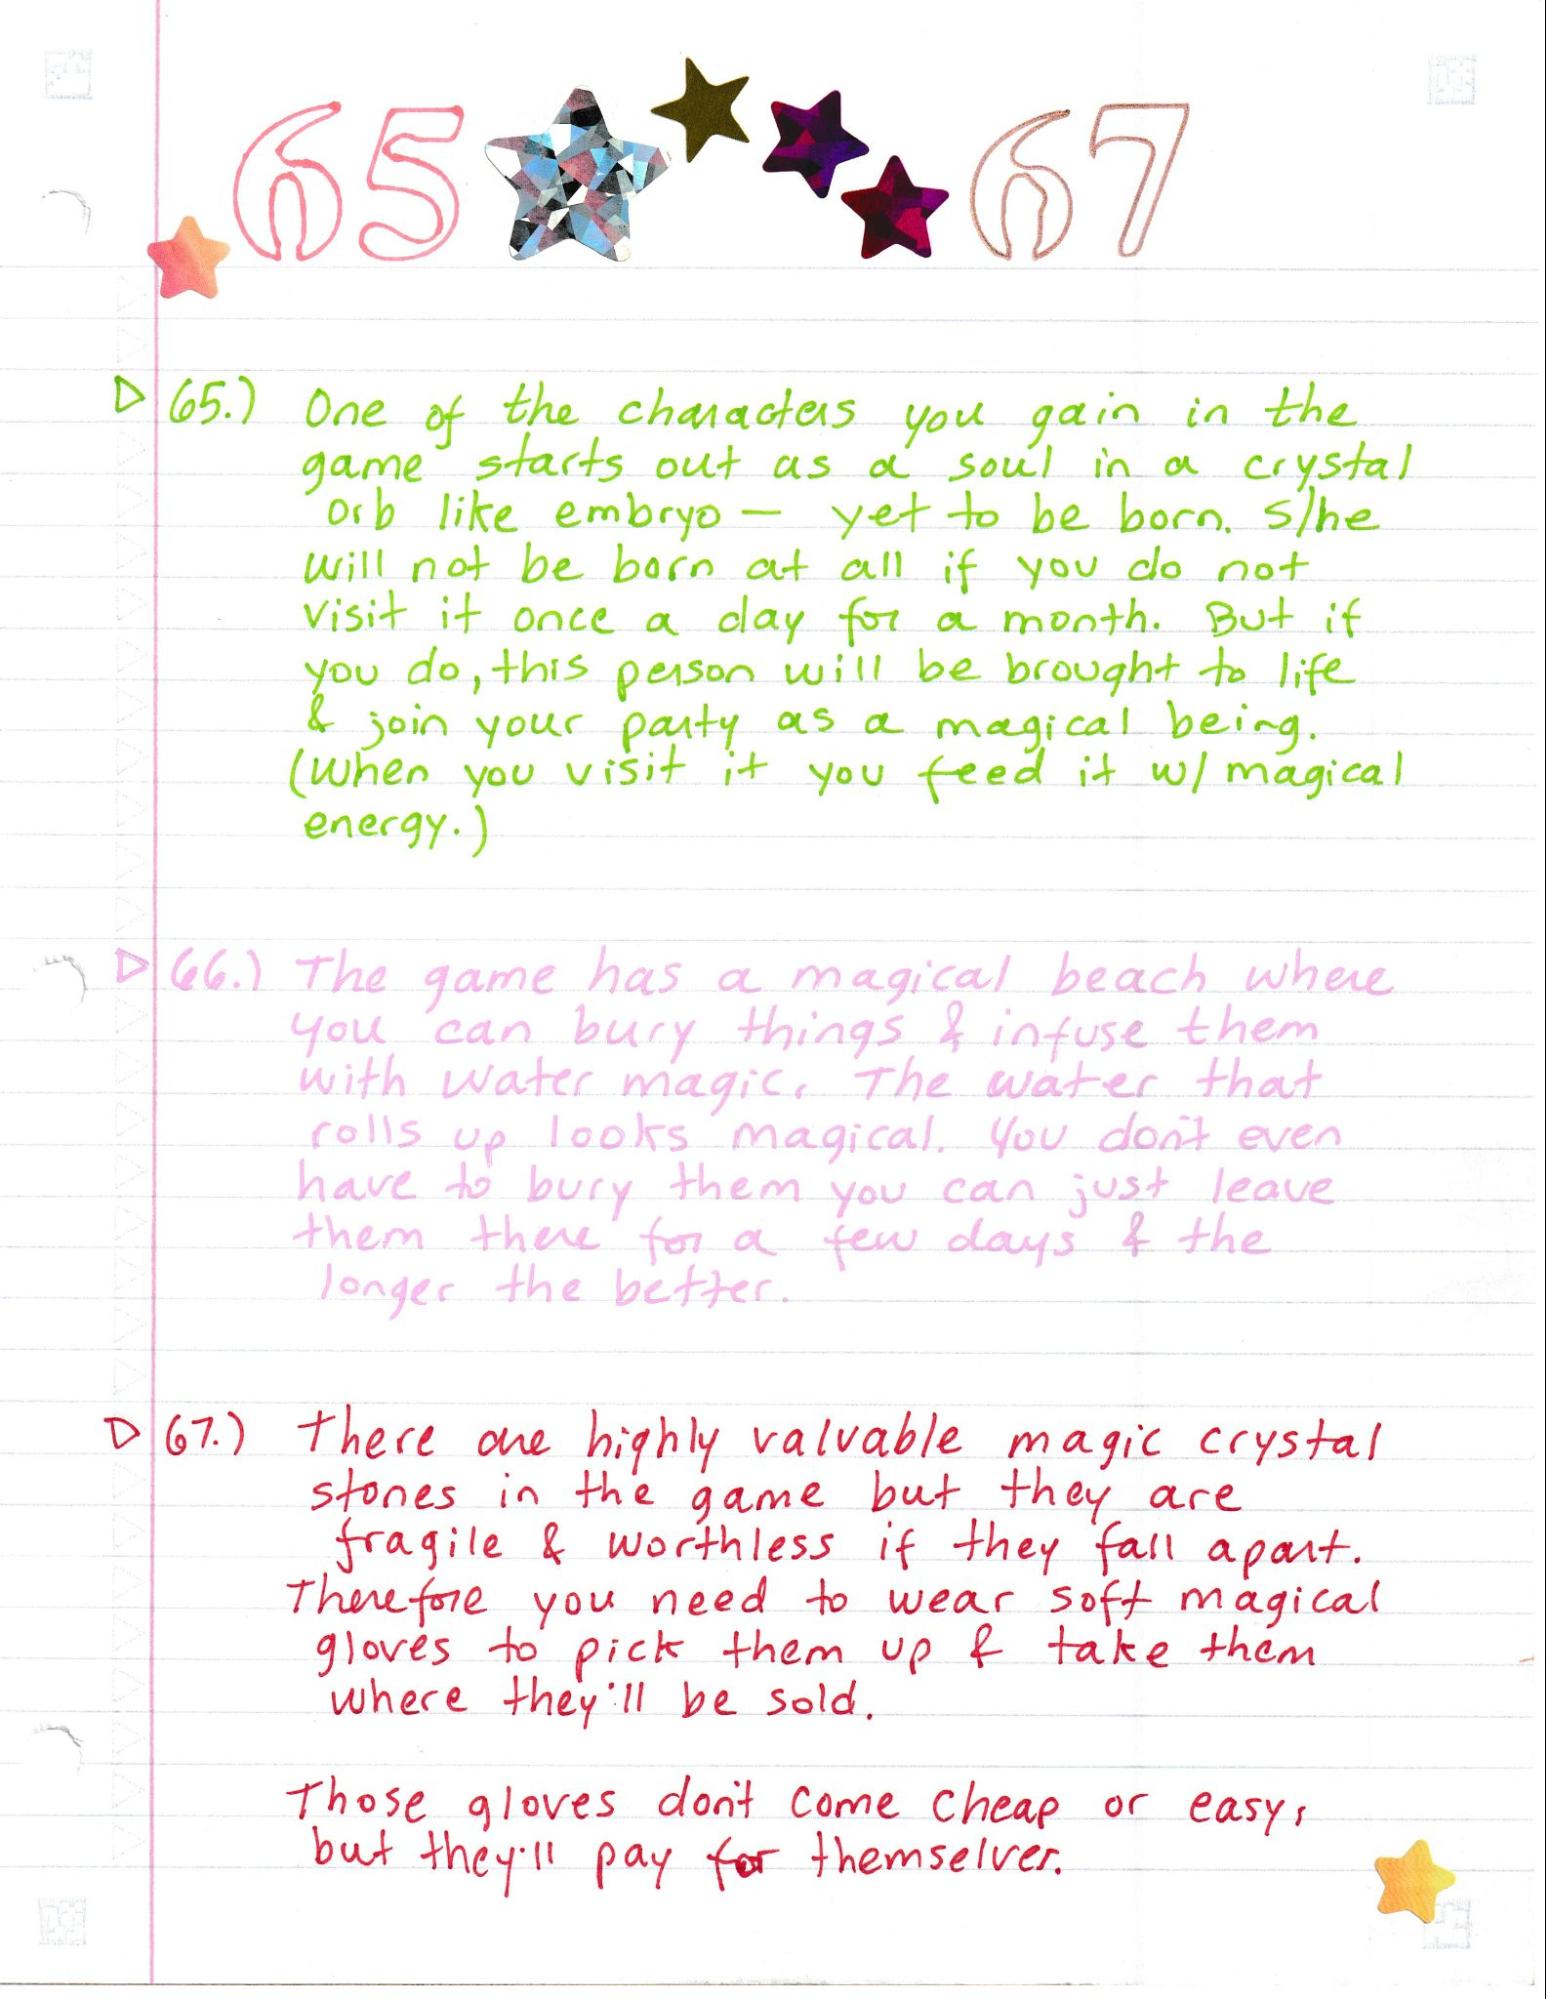 65 67
65.) One of the characters you gain in the
game starts out as a soul in a crystal
orb like embryo — yet to be born. S/he
will not be born at all if you do not
visit it once a day for a month. But if
you do, this person will be brought to life
& join your party as a magical being.
(When you visit it you feed it w/ magical
energy.)
66.) The game has a magical beach where
you can bury things & infuse them
with water magic. The water that
rolls up looks magical. You don't even
have to bury them you can just leave
them there for a few days & the
longer the better.
67.) There are highly valuable magic crystal
stones in the game but they are
fragile & worthless if they fall apart.
Therefore you need to wear soft magical
gloves to pick them up & take them
where they'll be sold.
Those gloves don't come cheap or easy,
but they'll pay for themselves.